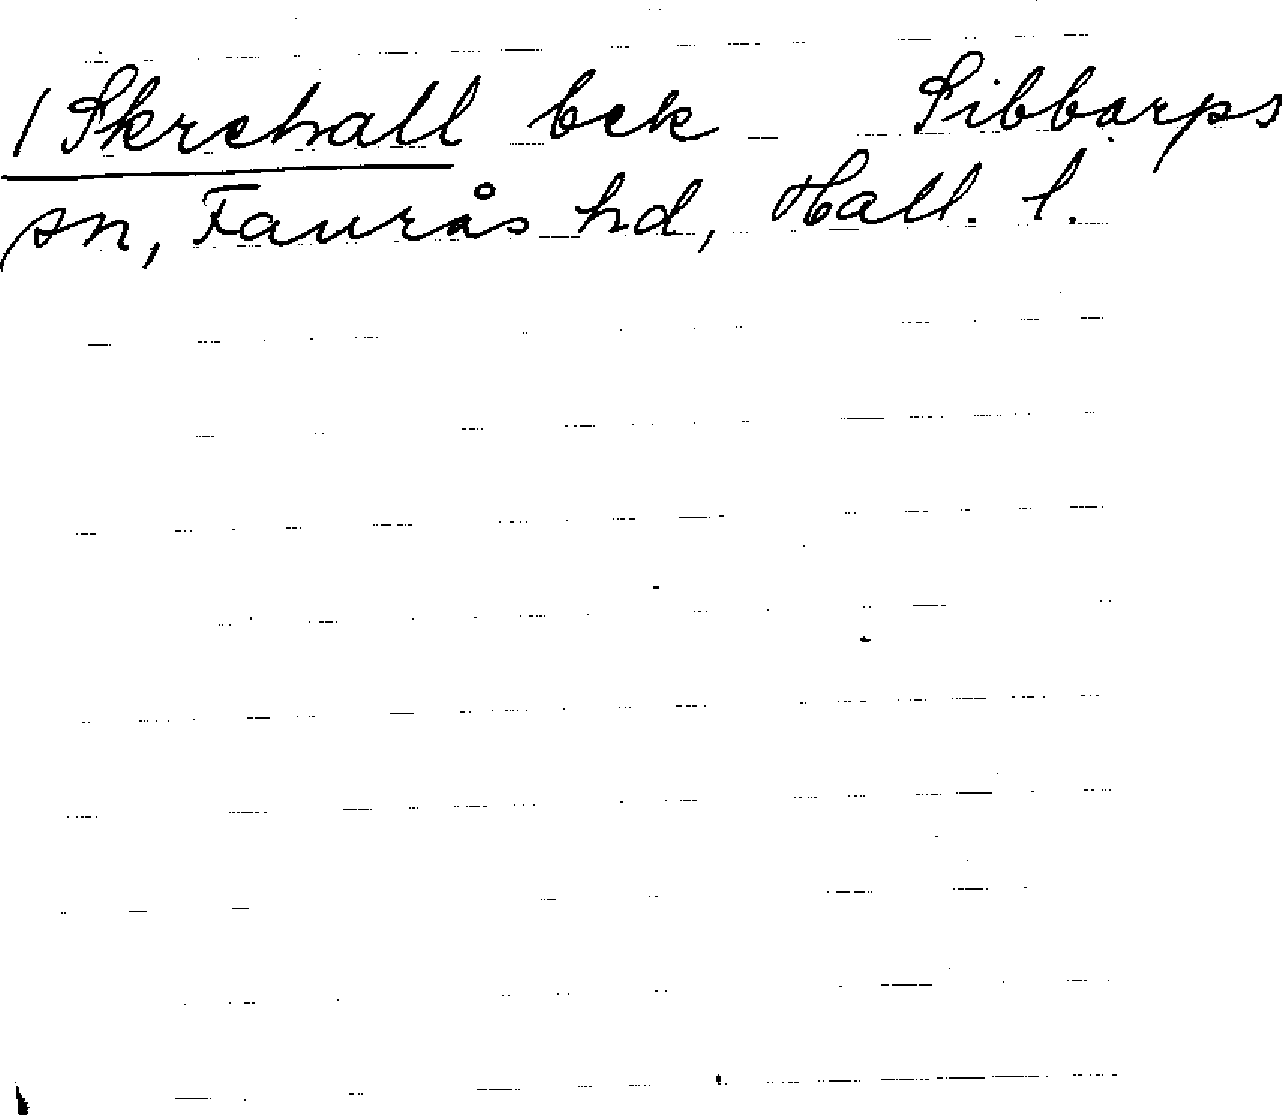 / Skrehall bek Sibbarps
sn, Faurås hd, Hall. l.